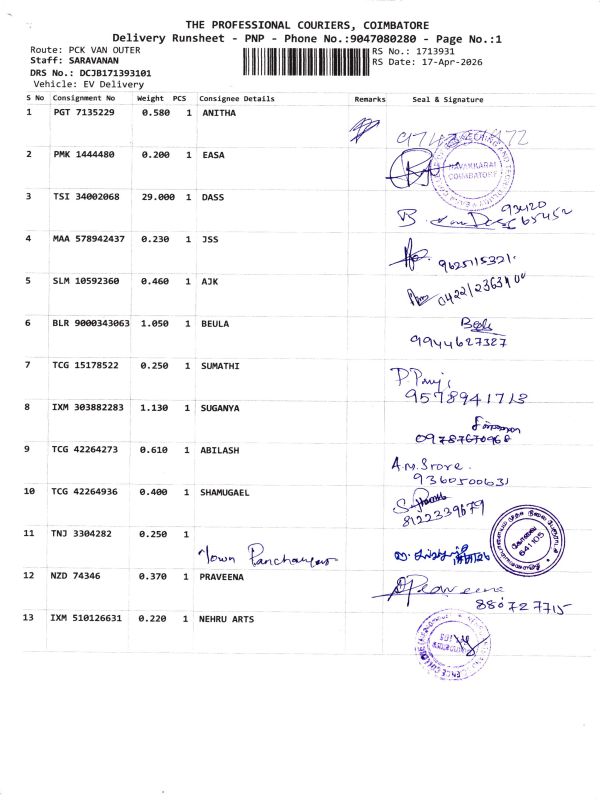 THE PROFESSIONAL COURIERS, COIMBATORE
Delivery Runsheet - PNP - Phone No.:9047080280 - Page No.:1
Route: PCK VAN OUTER
RS No.: 1713931
Staff: SARAVANAN
RS Date: 17-Apr-2026
DRS No.: DCJB171393101
Vehicle: EV Delivery
S No Consignment No Weight PCS Consignee Details Remarks Seal & Signature
1 PGT 7135229 0.580 1 ANITHA
2 PMK 1444480 0.200 1 EASA
NAVAKKARAI
COIMBATORE
3 TSI 34002068 29.000 1 DASS
93420
65452
4 MAA 578942437 0.230 1 JSS
9625115321
5 SLM 10592360 0.460 1 AJK
0422/2363400
6 BLR 9000343063 1.050 1 BEULA
9944627327
7 TCG 15178522 0.250 1 SUMATHI
9578941713
8 IXM 303882283 1.130 1 SUGANYA
9 TCG 42264273 0.610 1 ABILASH
A.M. Store.
9360500631
10 TCG 42264936 0.400 1 SHAMUGAEL
8122339679
11 TNJ 3304282 0.250 1
Town Panchayat
641105
12 NZD 74346 0.370 1 PRAVEENA
Praveena
880727715
13 IXM 510126631 0.220 1 NEHRU ARTS